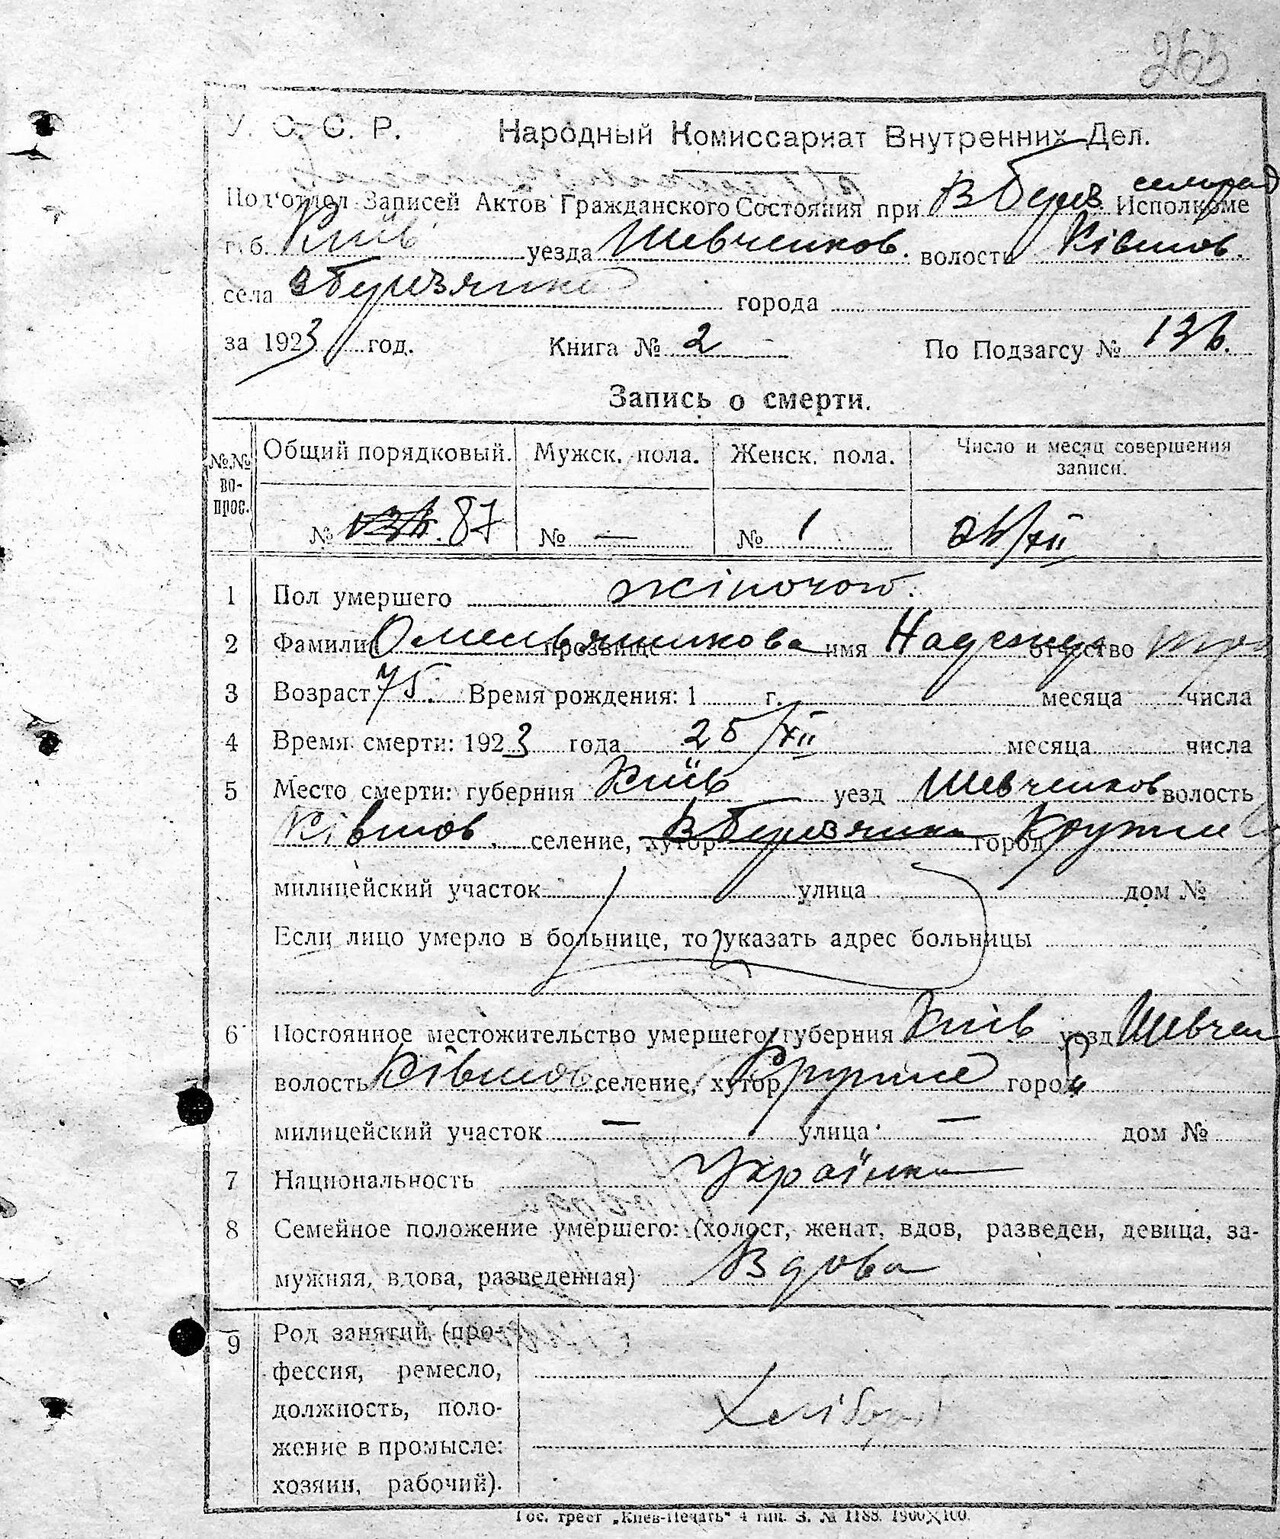 265
У. С. С. Р. Народный Комиссариат Внутренних Дел.
Подотдел Записей Актов Гражданского Состояния при В Берез сельрад Исполкоме
г.б. Київ уезда Шевченков. волости Ківшов.
села В Березянка города
за 1923 год. Книга № 2 По Подзагсу № 136.
Запись о смерти.
№№ вопрос. Общий порядковый. Мужск. пола. Женск. пола. Число и месяц совершения записи.
№ 87 № — № 1 /XII
1 Пол умершего жіночого.
2 Фамилия Омельяненкова прозвище имя Надежда отчество
3 Возраст 75. Время рождения: 1 г. месяца числа
4 Время смерти: 1923 года 25/XII месяца числа
5 Место смерти: губерния Київ уезд Шевченков волость
Ківшов. селение, хутор В Березянка город
милицейский участок улица дом №
Если лицо умерло в больнице, то указать адрес больницы
6 Постоянное местожительство умершего: губерния Київ уезд Шевчен
волость Ківшов селение, хутор город
милицейский участок — улица — дом №
7 Национальность Українка
8 Семейное положение умершего: (холост, женат, вдов, разведен, девица, за-
мужняя, вдова, разведенная) Вдова
9 Род занятий (про-
фессия, ремесло,
должность, поло- Хлібороб
жение в промысле:
хозяин, рабочий).
Гос. трест „Киев-Печать" 4 тип. З. № 1188. 1900×100.